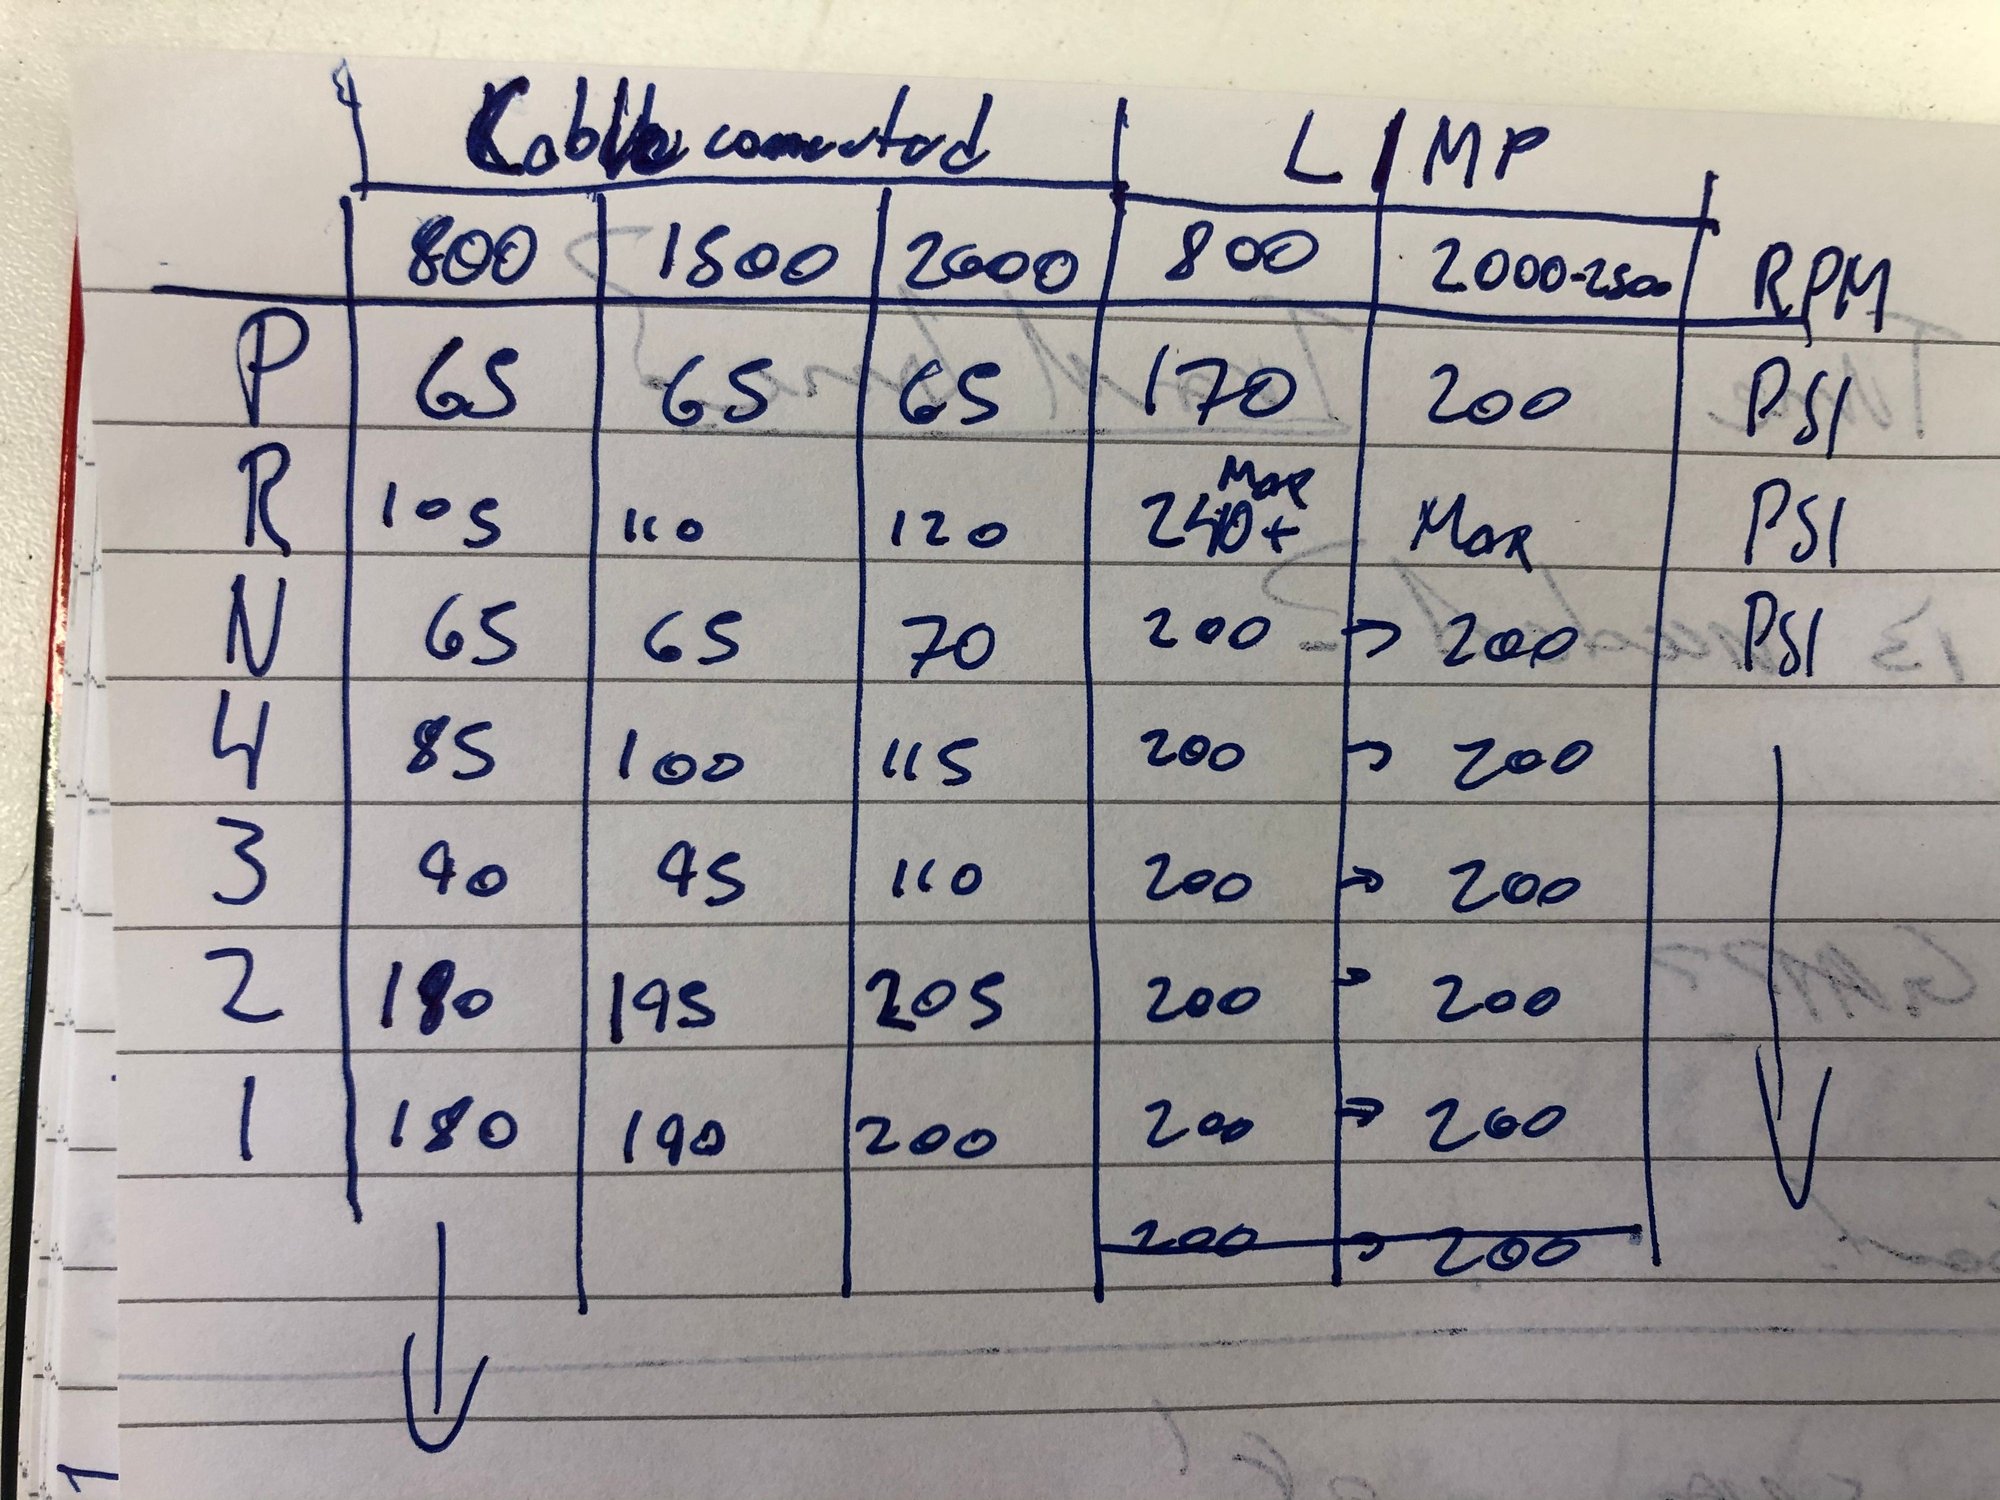 Cable connected L I MP
800 1500 2000 800 2000-2500 RPM
P 65 65 65 170 200 PSI
R 105 110 120 Max 240+ Max PSI
N 65 65 70 200 → 200 PSI
4 85 100 115 200 → 200
3 90 95 110 200 → 200
2 180 195 205 200 → 200
1 180 190 200 200 → 200
200 → 200